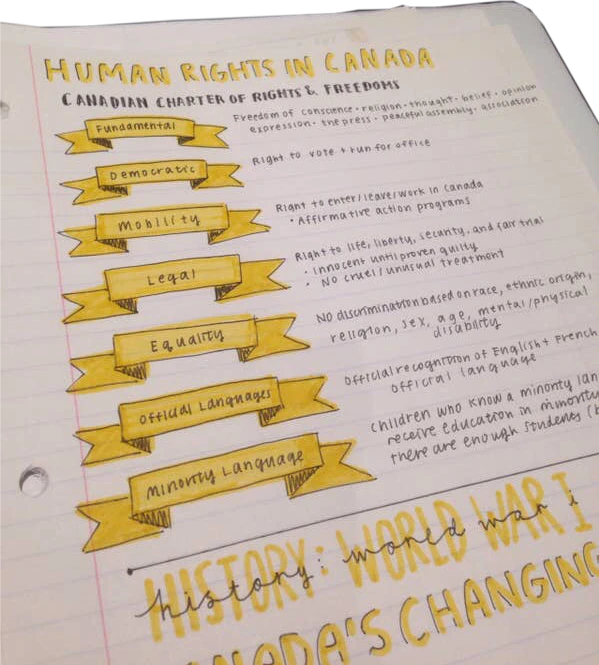 HUMAN RIGHTS IN CANADA
CANADIAN CHARTER OF RIGHTS & FREEDOMS
Fundamental
Freedom of conscience · religion · thought · belief · opinion
expression · the press · peaceful assembly · association
Democratic
Right to vote + run for office
Mobility
Right to enter/leave/work in Canada
• Affirmative action programs
Legal
Right to life, liberty, security, and fair trial
• Innocent until proven guilty
• No cruel/unusual treatment
Equality
No discrimination based on race, ethnic origin,
religion, sex, age, mental/physical
disability
Official Languages
Official recognition of English + French
official language
Minority Language
Children who know a minority lan
receive education in minority
there are enough students (
HISTORY: WORLD WAR I
history: world war i
NADA'S CHANGING